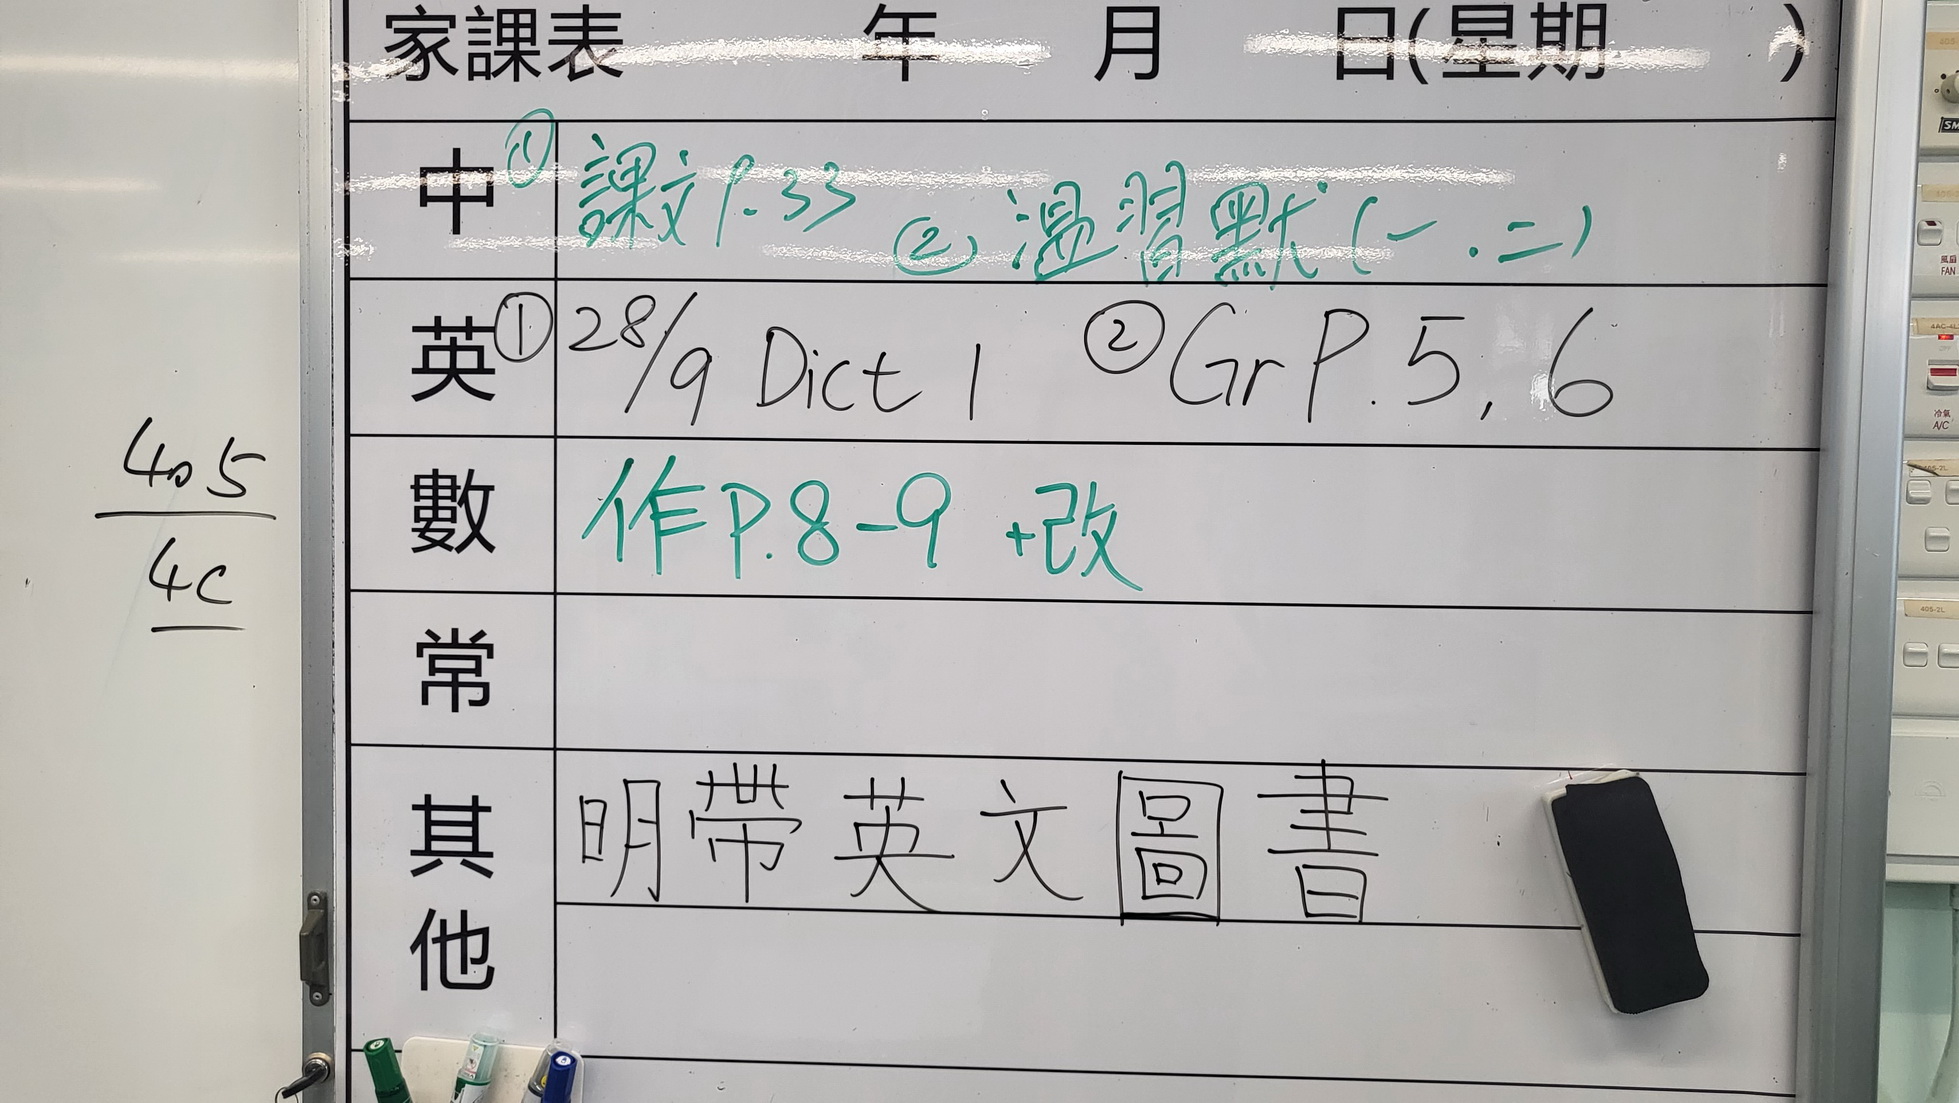 家課表 年 月 日(星期 )
中 ① 課文 P.33 ② 溫習默(一.二)
英 ① 28/9 Dict 1 ② Gr P.5,6
數 作P.8-9 +改
常
其他 明帶英文圖書
405
4C
風扇
FAN
4AC-4L
冷氣
A/C
405-2L
405-2L